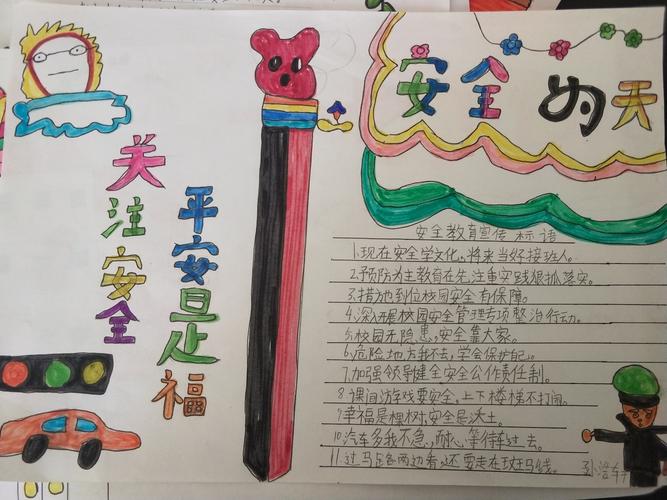 安全的天
关注安全
平安是福
安全教育宣传标语
1.现在安全学文化。将来当好接班人。
2.预防为主教育在先注重实践狠抓落实。
3.措施到位校园安全有保障。
4.深入开展校园安全管理专项整治行动。
5.校园无隐患,安全靠大家。
6.危险地方我不去,学会保护自己。
7.加强领导健全安全工作责任制。
8.课间游戏要安全,上下楼梯不打闹。
9.幸福是棵树,安全是沃土。
10.汽车多我不急,耐心等待车过去。
11.过马路两边看,还要走在斑马线。
孙浩轩